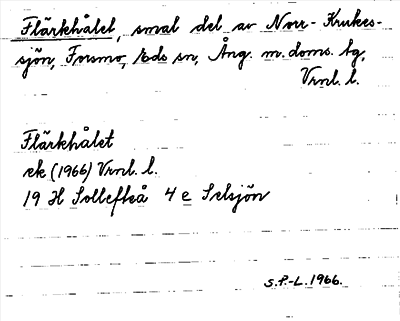 Flärkhålet, smal del av Norr-Krukes-
sjön, Forsmo, Eds sn, Ång. m. doms. tg,
Vrnl. l.
Flärkhålet
ek (1966) Vrnl. l.
19 H Sollefteå 4 e Selsjön
S.P.-L. 1966.